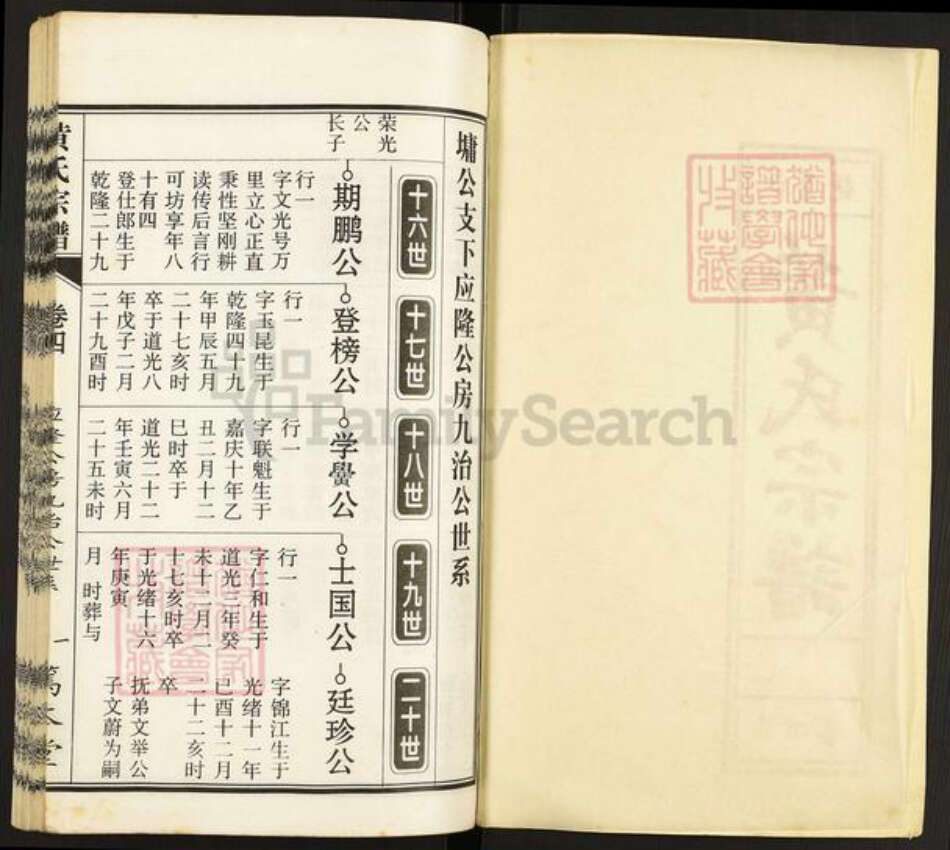 墉公支下应隆公房九治公世系
十六世
十七世
十八世
十九世
二十世
荣光
公
长子
期鹏公
行一
字文光号万
里立心正直
秉性坚刚耕
读传后言行
可坊享年八
十有四
登仕郎生于
乾隆二十九
登榜公
行一
字玉昆生于
乾隆四十九
年甲辰五月
二十七亥时
卒于道光八
年戊子二月
二十九酉时
学黌公
行一
字联魁生于
嘉庆十年乙
丑二月十二
巳时卒于
道光二十二
年壬寅六月
二十五未时
士国公
行一
字仁和生于
道光三年癸
未十二月二
十七亥时卒
于光绪十六
年庚寅
月 时葬与
廷珍公
字锦江生于
光绪十一年
已酉十二月
二十二亥时
卒
抚弟文举公
子文蔚为嗣
黄氏宗谱
卷四
应隆公房九治公世系
一
FamilySearch